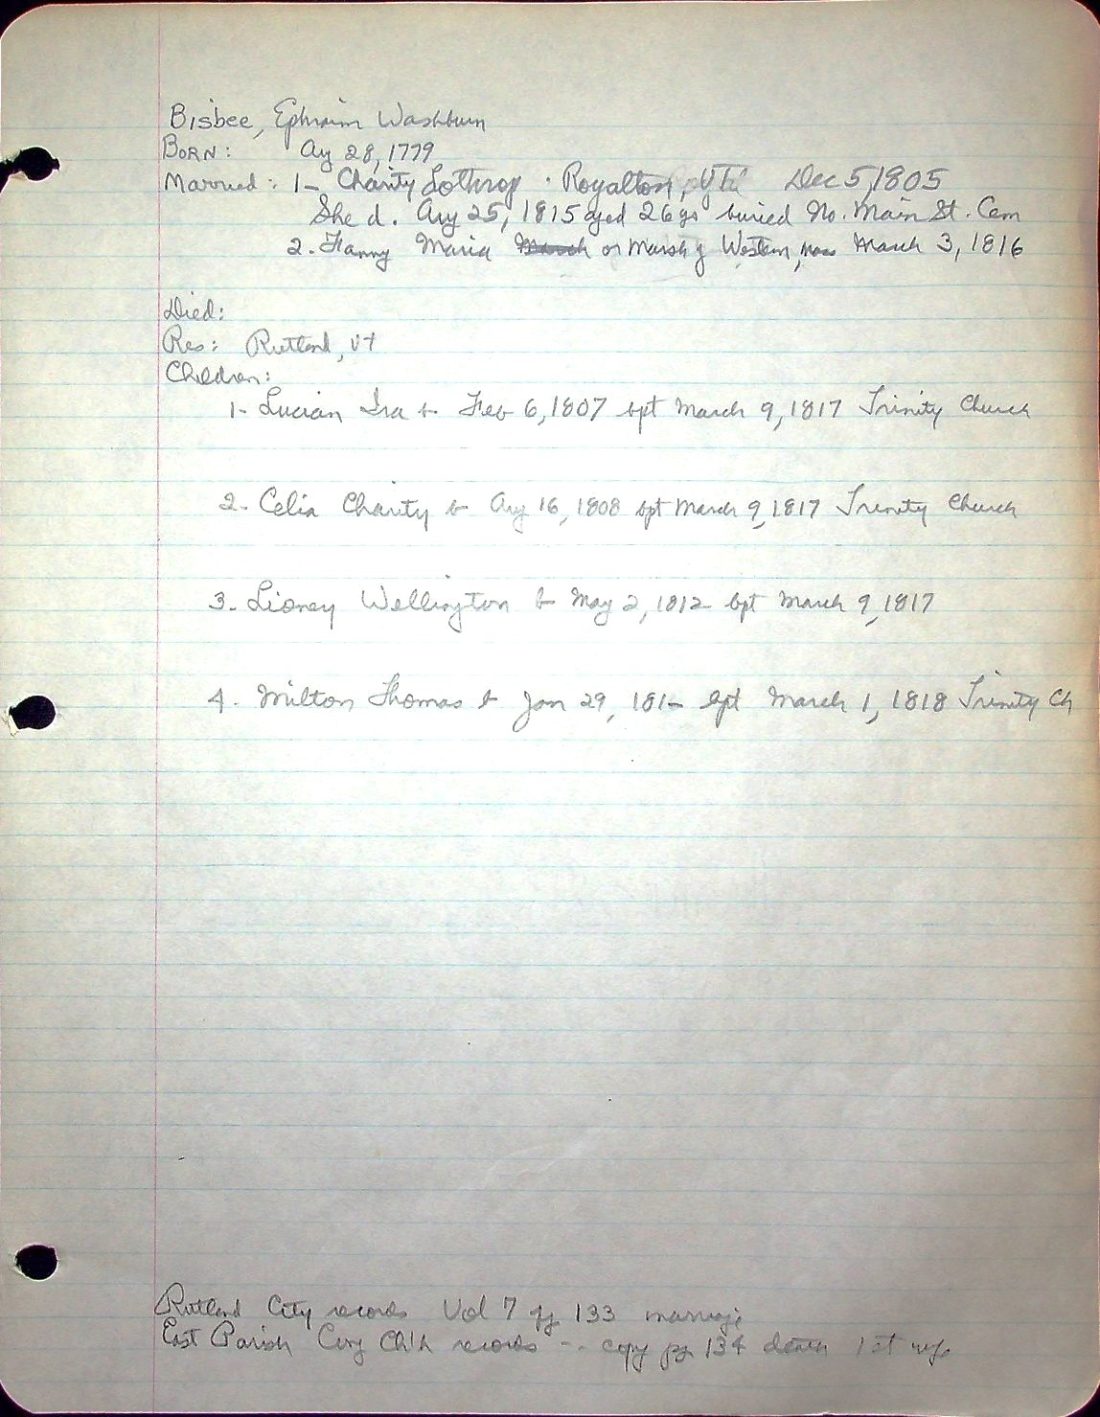 Bisbee, Ephraim Washburn
BORN: Aug 28, 1779
Married: 1- Charity Lothrop · Royalton, Vt Dec 5, 1805
She d. Aug 25, 1815 aged 26 ys buried No. Main St. Cem
2. Fanny Maria March or Marsh of Weston, mass March 3, 1816
Died:
Res: Rutland, Vt
Children:
1- Lucian Ira b Feb 6, 1807 bpt March 9, 1817 Trinity Church
2- Celia Charity b Aug 16, 1808 bpt March 9, 1817 Trinity Church
3- Lioney Wellington b May 2, 1812 bpt March 9, 1817
4. Milton Thomas b Jan 29, 181- bpt March 1, 1818 Trinity Ch
Rutland City records Vol 7 pg 133 marriage
East Parish Cong Ch'h records -- copy pg 134 death 1st wife